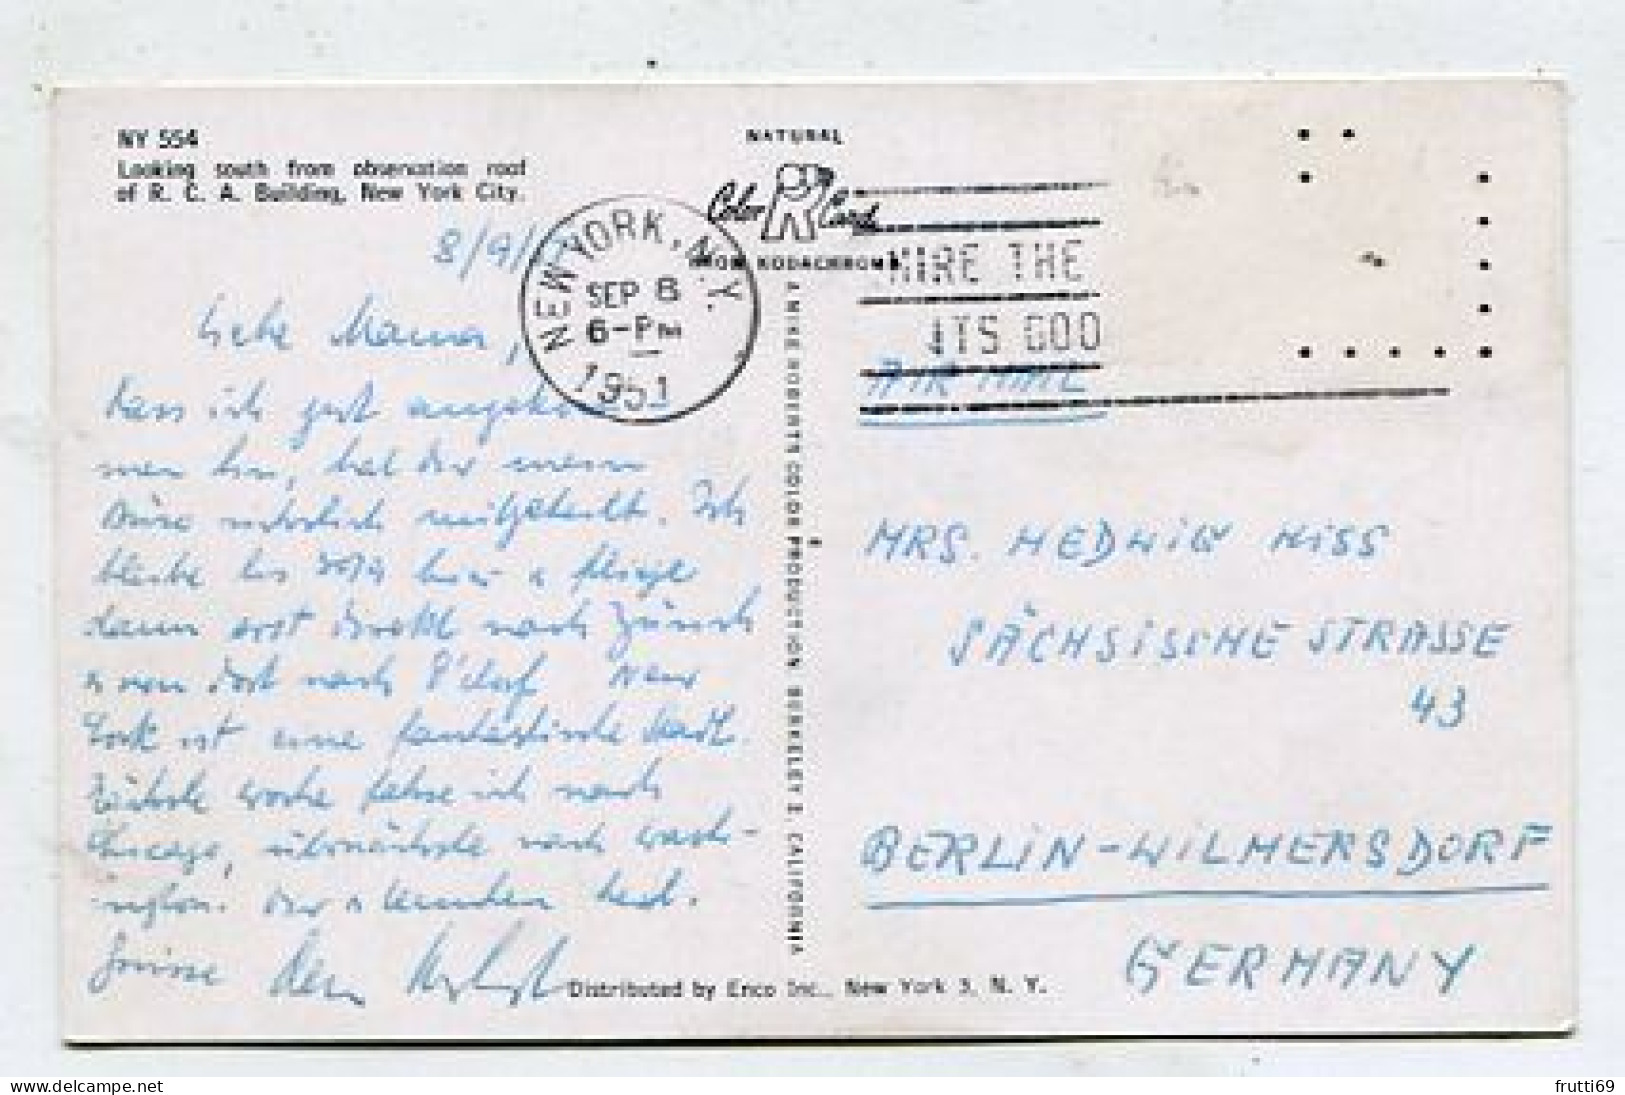 NY 554
Looking south from observation roof
of R. C. A. Building, New York City.
NATURAL
Color Cards
FROM KODACHROME
NEW YORK, N.Y.
SEP 8
6-PM
1951
HIRE THE
ITS GOO
8/9/
Liebe Mama,
dass ich gut angekom
men bin, hat Dir mein
Büro inzwischen mitgeteilt. Ich
bleibe bis hier u fliege
dann erst direkt nach Zürich
u von dort nach D'dorf New
York ist eine fantastische Stadt.
Nächste Woche fahre ich nach
Chicago, übernächste nach Wash-
ington. Dir u
Grüsse Dein
A MIKE ROBERTS COLOR PRODUCTION BERKELEY 2, CALIFORNIA
AIR MAIL
MRS. HEDWIG HISS
SÄCHSISCHE STRASSE
43
BERLIN-WILMERSDORF
GERMANY
Distributed by Enco Inc., New York 3, N. Y.
frutti69